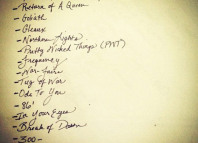 - Picture of A Queen
- Goliath
- Gleaux
- Northern Lights
- Pretty Wicked Things (PWT)
- Frequency
- War-fare
- Tug of War
- Ode To You
- 86'
- In Your Eyes
- Break of Dawn
- 300 -